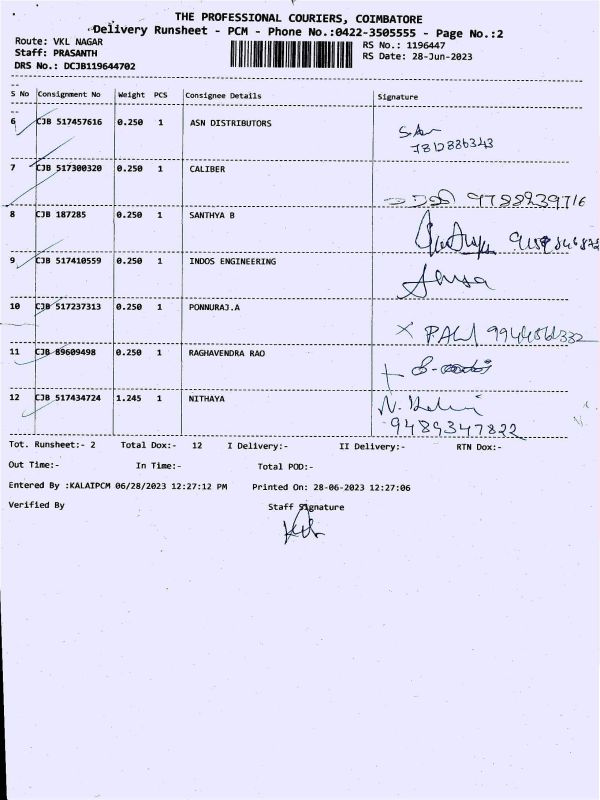 THE PROFESSIONAL COURIERS, COIMBATORE
Delivery Runsheet - PCM - Phone No.:0422-3505555 - Page No.:2
Route: VKL NAGAR RS No.: 1196447
Staff: PRASANTH RS Date: 28-Jun-2023
DRS No.: DCJB119644702
S No Consignment No Weight PCS Consignee Details Signature
6 CJB 517457616 0.250 1 ASN DISTRIBUTORS
7 CJB 517300320 0.250 1 CALIBER
9788839716
8 CJB 187285 0.250 1 SANTHYA B
9 CJB 517410559 0.250 1 INDOS ENGINEERING
10 CJB 517237313 0.250 1 PONNURAJ.A
11 CJB 89609498 0.250 1 RAGHAVENDRA RAO
12 CJB 517434724 1.245 1 NITHAYA
9489347822
Tot. Runsheet:- 2 Total Dox:- 12 I Delivery:- II Delivery:- RTN Dox:-
Out Time:- In Time:- Total POD:-
Entered By :KALAIPCM 06/28/2023 12:27:12 PM Printed On: 28-06-2023 12:27:06
Verified By Staff Signature